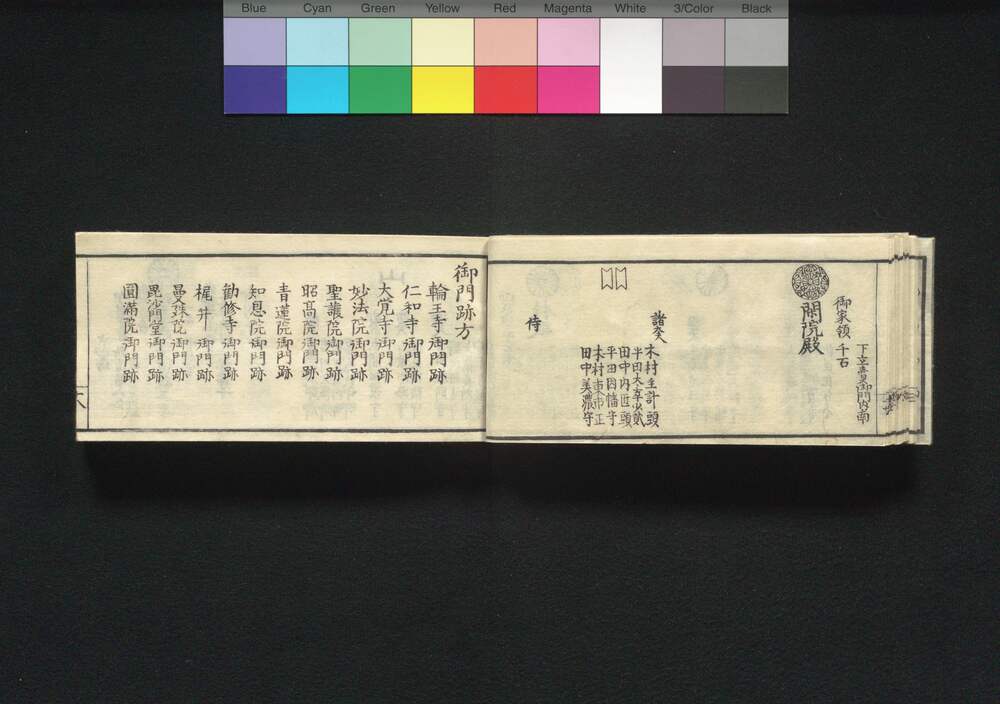 Blue Cyan Green Yellow Red Magenta White 3/Color Black
閑院殿
御家領 千石
諸大夫
木村主計頭
半田大宰少貳
田中内匠頭
平田因幡守
木村東市正
田中美濃守
侍
御門跡方
輪王寺御門跡
仁和寺御門跡
大覚寺御門跡
妙法院御門跡
聖護院御門跡
昭高院御門跡
青蓮院御門跡
知恩院御門跡
勧修寺御門跡
梶井御門跡
曼殊院御門跡
毘沙門堂御門跡
圓滿院御門跡